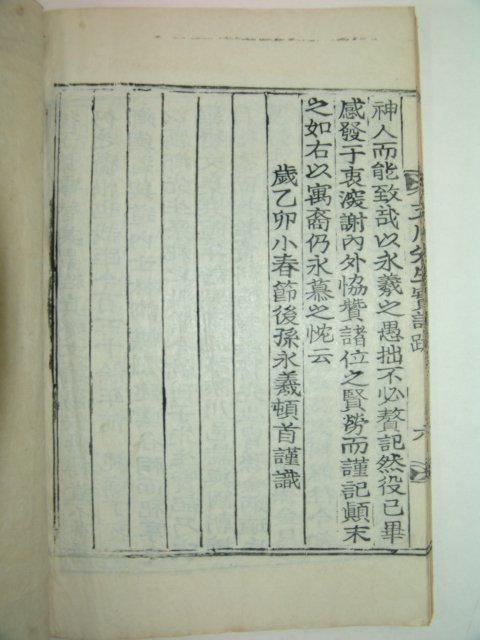 神人而能致哉以永羲之愚拙不必贅記然役已畢
感發于衷深謝內外協贊諸位之賢勞而謹記顚末
之如右以寓裔仍永慕之忱云
歲乙卯小春節後孫永羲頓首謹識
川先生實記跋
六